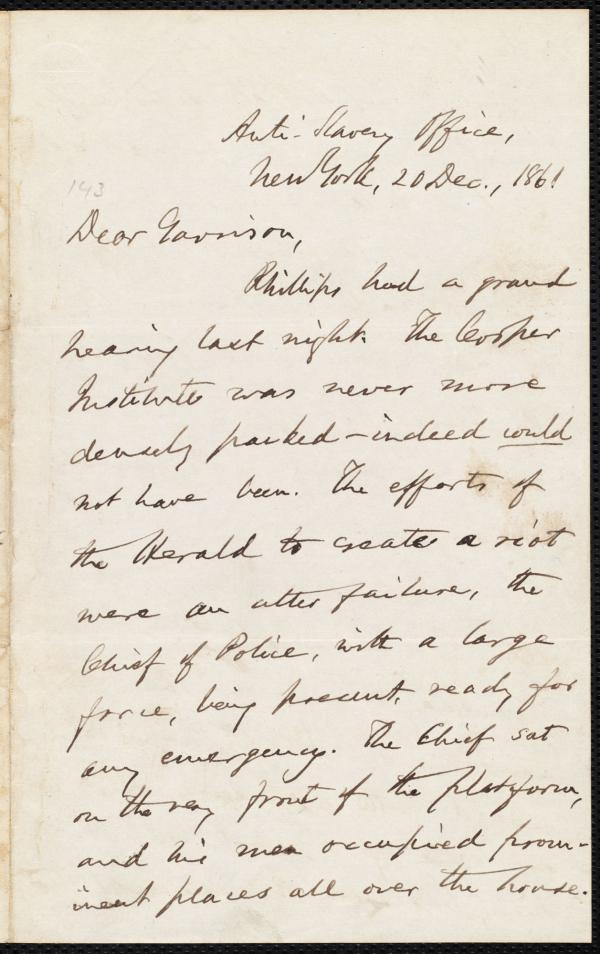 Anti-Slavery Office,
New York, 20 Dec., 1861
143
Dear Garrison,
Phillips had a grand
hearing last night. The Cooper
Institute was never more
densely packed – indeed could
not have been. The efforts of
the Herald to create a riot
were an utter failure, the
Chief of Police, with a large
force, being present, ready for
any emergency. The Chief sat
on the very front of the platform,
and his men occupied prom-
inent places all over the house.